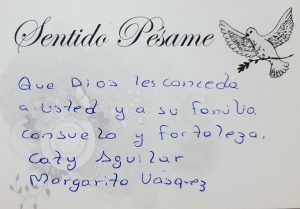 Sentido Pésame
Que Dios les conceda
a usted y a su familia
consuelo y fortaleza.
Caty Aguilar
Margarito Vásquez